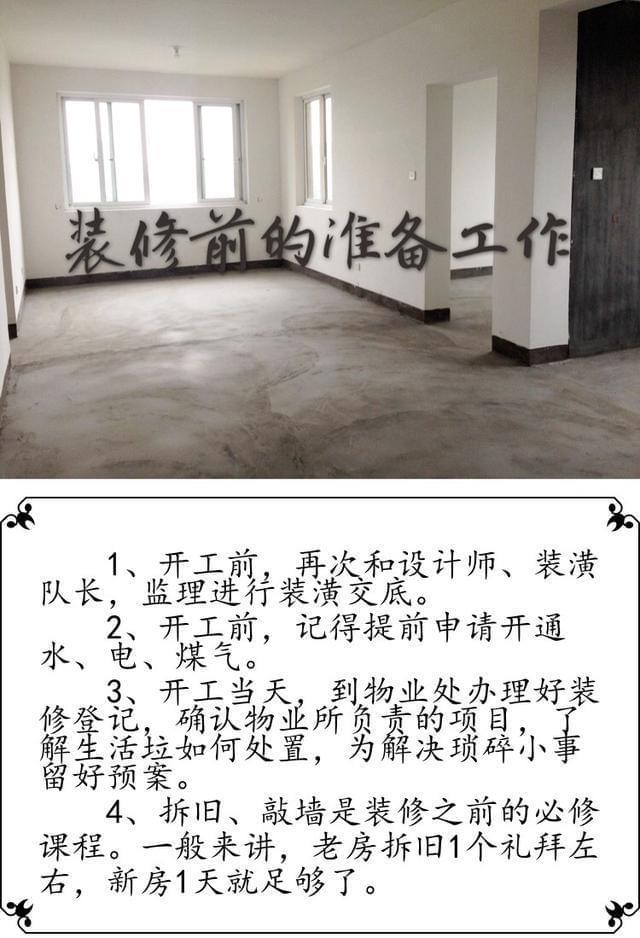 装修前的准备工作
1、开工前，再次和设计师、装潢
队长，监理进行装潢交底。
2、开工前，记得提前申请开通
水、电、煤气。
3、开工当天，到物业处办理好装
修登记，确认物业所负责的项目，了
解生活垃如何处置，为解决琐碎小事
留好预案。
4、拆旧、敲墙是装修之前的必修
课程。一般来讲，老房拆旧1个礼拜左
右，新房1天就足够了。